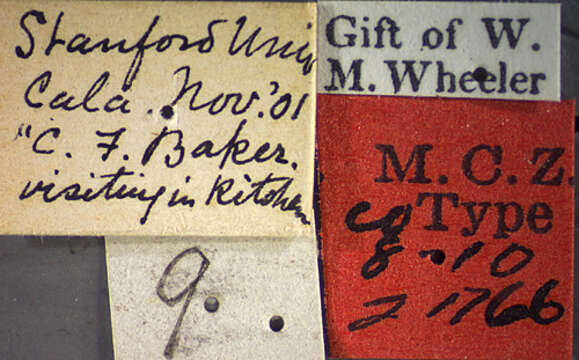 Stanford Univ
Cala. Nov. '01
"C. F. Baker.
visiting in kitchen
Gift of W.
M. Wheeler
M. C. Z.
Type
8-10
21766
9.